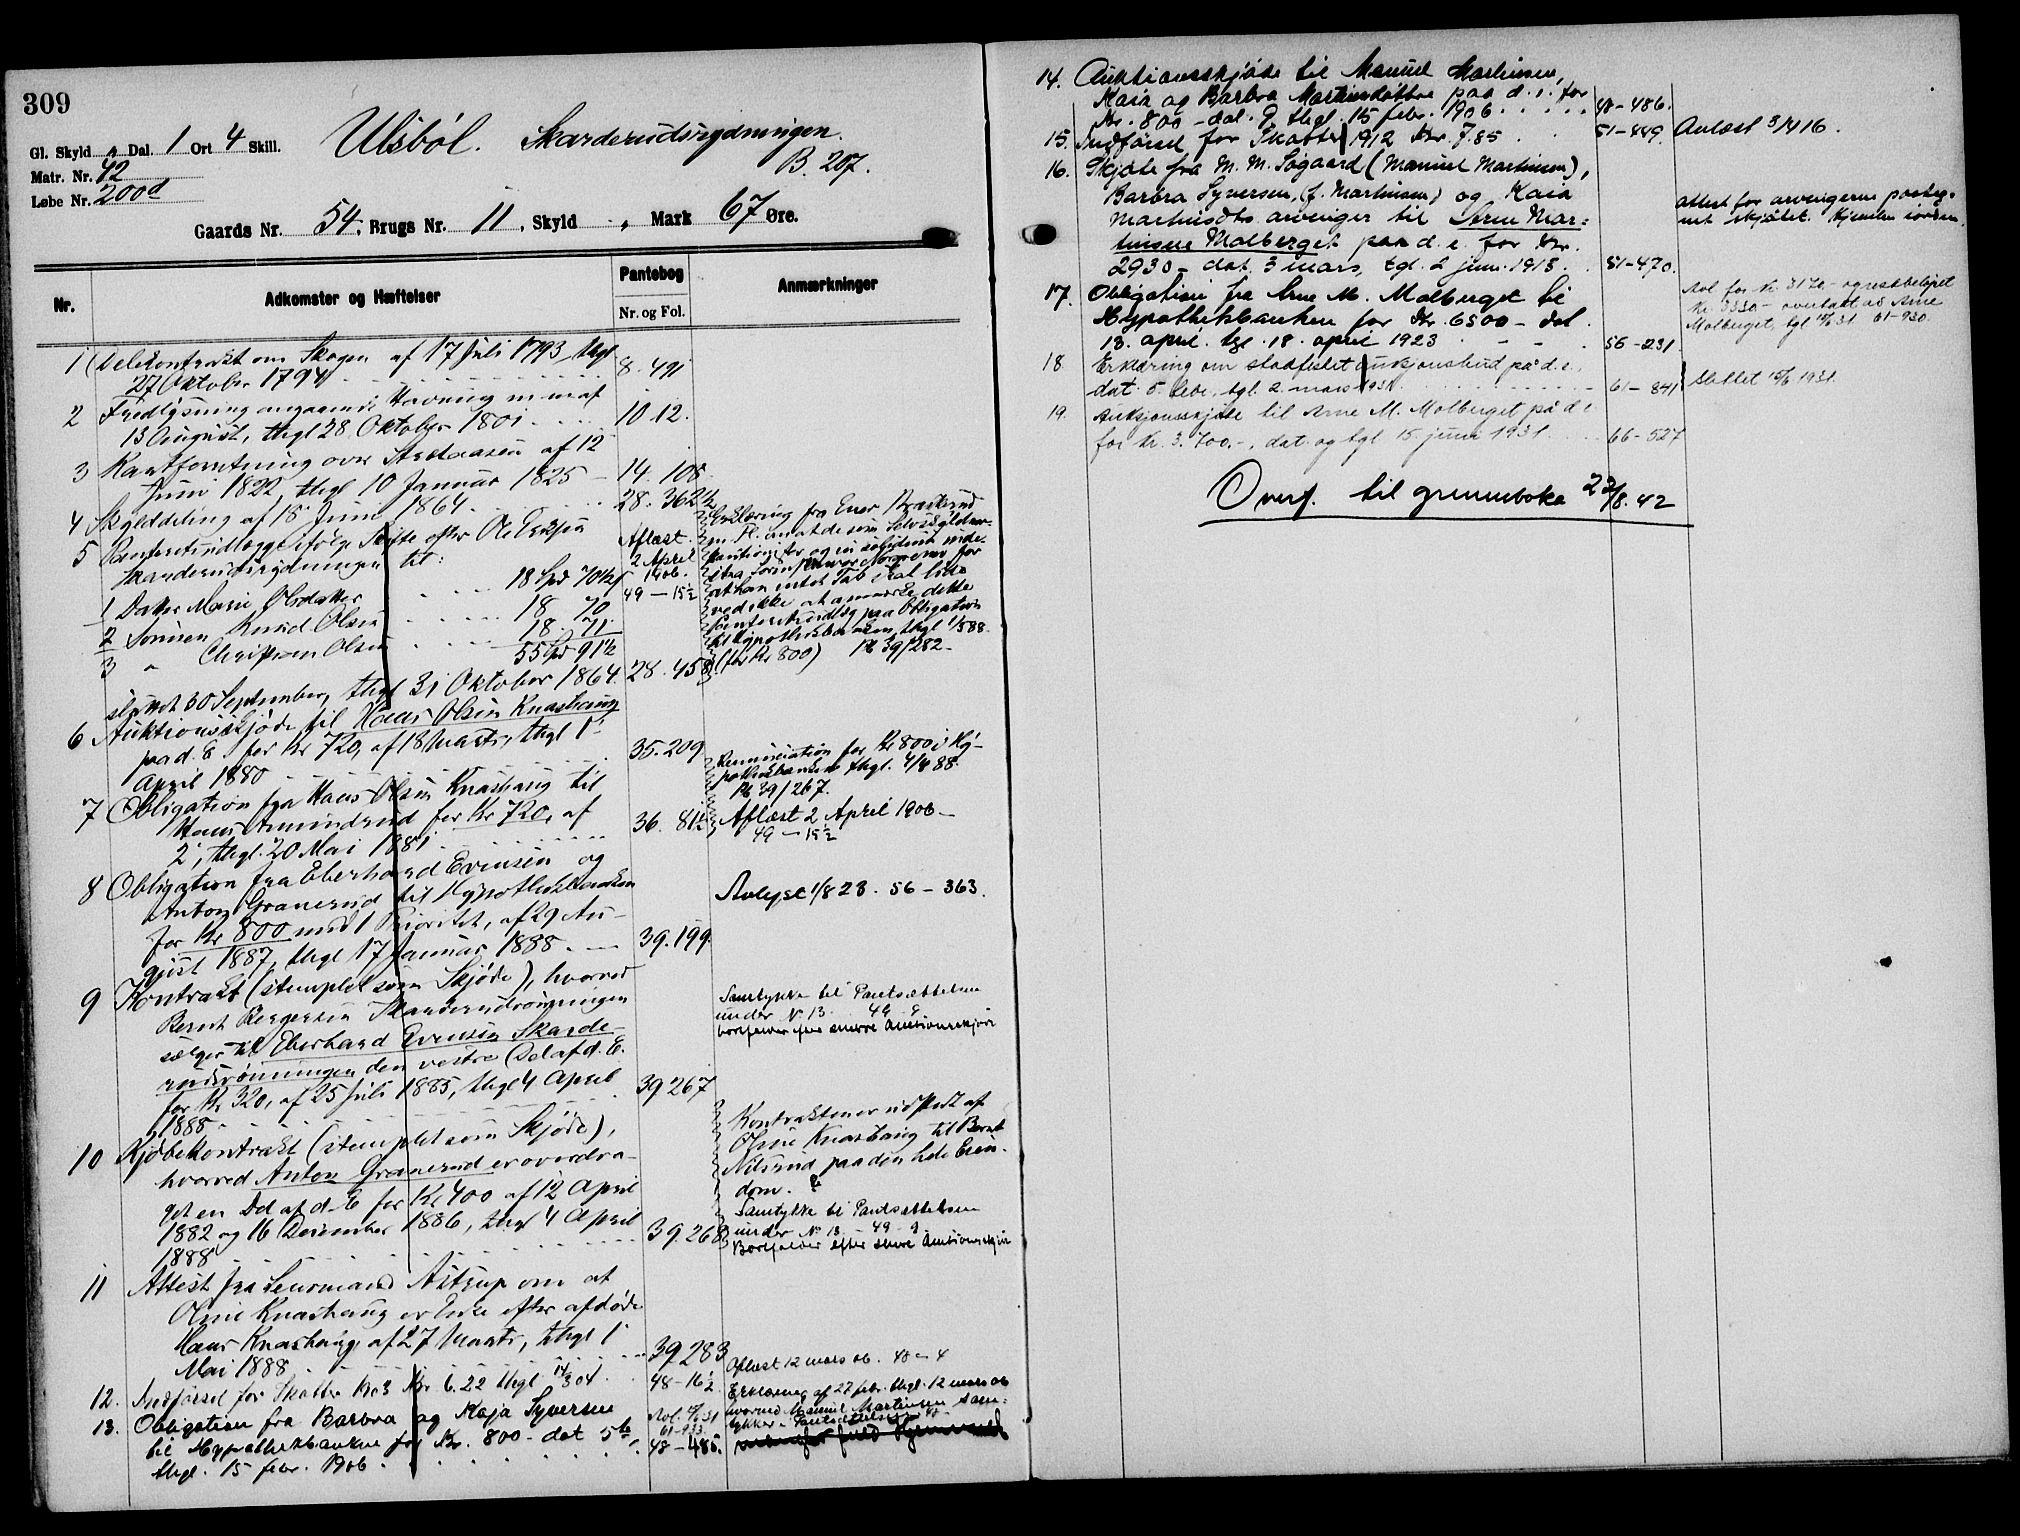 309
Gl. Skyld „ Dal. 1 Ort 4 Skill.
Ulsböl. Skarderudsrydningen.
B. 207.
Matr. Nr. 42
Løbe Nr. 200d
Gaards Nr. 54. Brugs Nr. 11, Skyld „ Mark 67 Øre.
Nr.
Adkomster og Hæftelser
Pantebog
Nr. og Fol.
Anmærkninger
1 Delekontrakt om Skogen af 17 Juli 1793, thgl
27 Oktober 1794 8. 491
2 Fredlysning angaaende Havning m. m. af
13 August, thgl 28 Oktober 1801 10. 12.
3 Kartforretning over af 12
Juni 1822, thgl 10 Januar 1825 14. 108
4 Skylddeling af 15 Juni 1864 28. 362½
5 Panteretsudlæg ifølge Skifte efter Ole
Skarderudsrydningen til:
1 Datter Marie Olsdatter 18 Spd 70½
2 Sønnen Knud Olsen 18 70
3 " Christian Olsen 18. 71.
55 Spd 91½
sluttet 30 September, thgl 31 Oktober 1864. 28. 458
Aflæst
2 April
1906.
49 – 15½
Erklæring fra
at han intet Tab skal lide
ved ikke at anmærke dette
Panteretsudlæg paa Obligation
til Hypothekbanken, thgl 1/588.
(for Kr 800) Pb 39/282 –
6 Auktionsskjøde til Hans Olsen Knashaug
paa d. E. for Kr 720, af 18 Marts, thgl 1'
April 1880 35. 209
7 Obligation fra Hans Olsen Knashaug til
Hans Amundrud for Kr 720, af
2', thgl. 20 Mai 1881 36. 81½
Renunciation for Kr 800 i Hy-
pothekbanken thgl. 4/4 88.
Pb 39/267.
Aflæst 2 April 1906 –
49 – 15½
8 Obligation fra Eberhard Evensen og
Anton Granerud til Hypothekbanken
for Kr 800 med 1 Prioritet, af 29 Au-
gust 1887, thgl 17 Januar 1888. 39. 199.
Avlyst 1/8 23. 56 – 363.
9 Kontrakt (stemplet som Skjøde), hvorved
Bernt Bergersen Skarderudrönningen
sælger til Eberhard Evensen Skarde-
rudrönningen den vestre Del af d. E.
for Kr 320, af 25 Juli 1885, thgl 4 April
1888 39 267
Samtykke til Pantsættelsen
under No 13 49 – 9
bortfalder efter senere Auktionsskjøde
10 Kjøbekontrakt (stemplet som Skjøde),
hvorved Anton Granerud er overdra-
get en Del af d. E for Kr 400 af 12 April
1882 og 16 December 1886, thgl 4 April
1888 39. 268
Kontrakten er udstedt af
Oline Knashaug til Bernt
Nilsrud paa den hele Eien-
dom.
Samtykke til Pantsættelsen
under No 13 49 – 9
Bortfalder efter senere Auktionsskjøde
11 Attest fra Lensmand Astrup om at
Oline Knashaug er Enke efter afdøde
Hans Knashaug, af 27 Marts, thgl 1'
Mai 1888 39 283
12. Indførsel for Skatter 1903 Kr 6.22 thgl 14/3 04 48 – 16½
Aflæst 12 mars 06. 48 – 4
13. Obligation fra Barbra og Kaja Syversen
til Hypothekbanken for Kr. 800 – dat 5te
thgl. 15 febr. 1906 48 – 485.
61–933
Erklæring af 27 febr. thgl. 12 mars 06
hvorved Manuel Martinsen sam-
tykker i Pantsættelsen
14. Auktionsskjøde til Manuel Martinsen,
Kaia og Barbra Martinsdøttre paa d. e. for
Kr. 800 – dat. 9 thgl. 15 febr. 1906 48 – 486.
15. Indførsel for Skatter 1912 Kr. 7.85 51 – 449. Avlæst 3/4 16.
16. Skjøte fra M. M. Søgaard (Manuel Martinsen),
Barbra Syversen, (f. Martinsen) og Kaia
Martinsdts. arvinger til Arne Mar-
tinsen Malberget paa d. e. for Kr.
2930 – dat. 3 mars, tgl. 2 juni 1913 51 – 470.
attest for arvingerne paateg-
net skjøtet. Hjemlen iorden.
17. Obligation fra Arne M. Malberget til
Hypothekbanken for Kr. 6500 – dat.
13. april. tgl. 18. april 1923 56 – 231
Avl for Kr. 3170 – og restbeløpet
Kr. 3330 – overtatt av Arne
Malberget, tgl 61 – 930.
18. Erklæring om stadfestet auksjonsbud på d. e.,
dat. 5. febr., tgl. 2. mars 1931 61 – 841 Slettet 15/6 1931.
19. Auksjonsskjøte til Arne M. Malberget på d e
for Kr. 3.700.–, dat. og tgl. 15. juni 1931 66 – 527
Overf. til grunnboka 22/8. 42